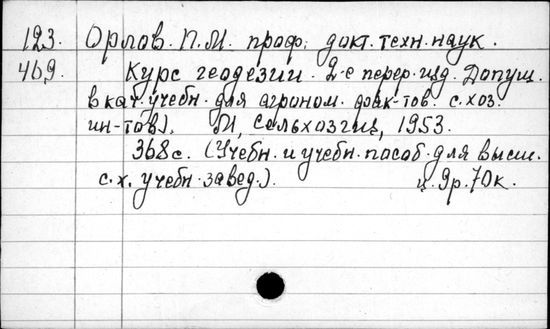 123. Орлов. П.М. проф. докт. техн. наук.
469. Курс геодезии. 2-е перер. изд. Допущ.
в кач. учебн. для агроном. фак-тов. с.хоз.
ин-тов). М, Сельхозгиз, 1953.
368 с. (Учебн. и учебн. пособ. для высш.
с.х. учебн. завед.). ц. 9р. 70к.